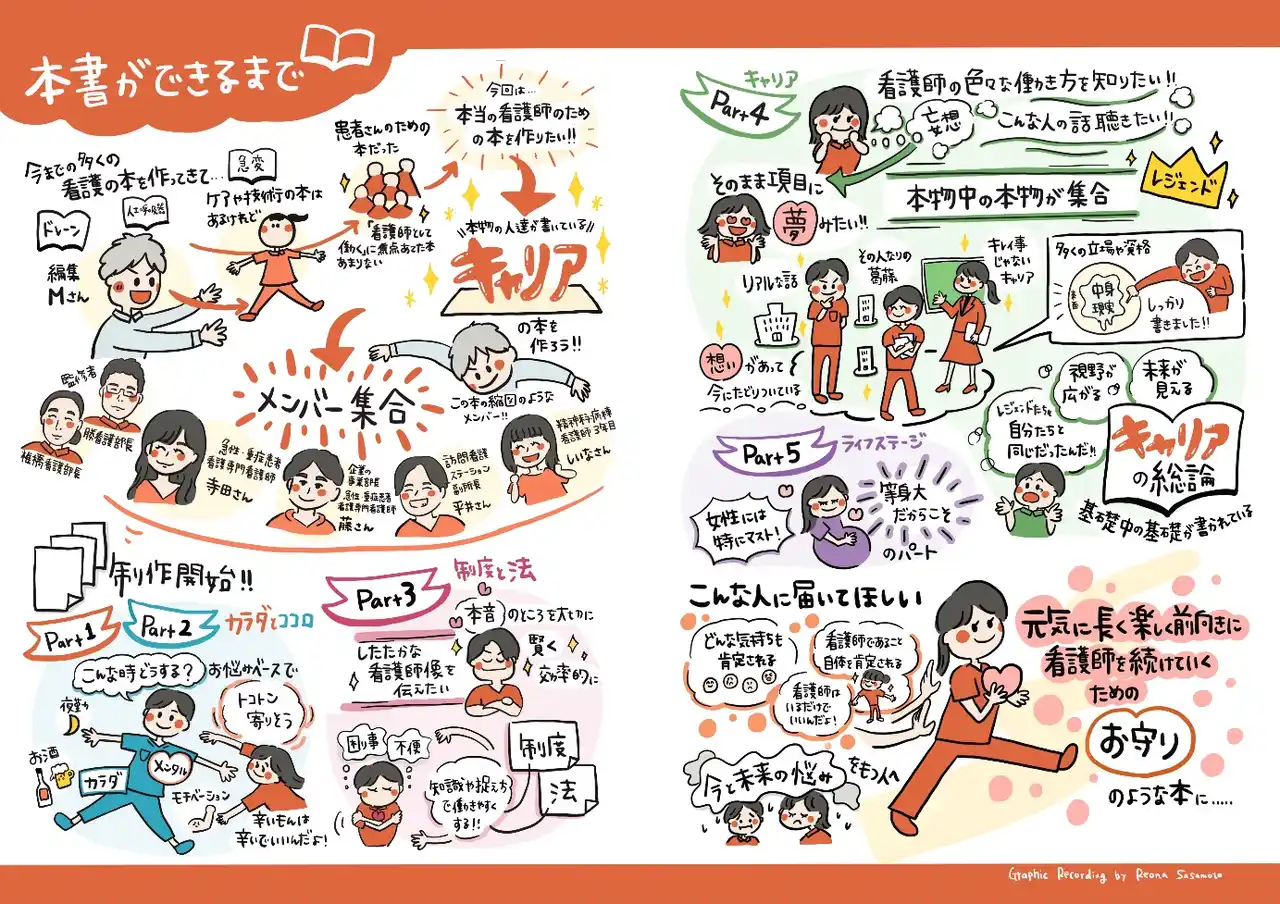 本書ができるまで
今までの多くの
看護の本を作ってきて…
ドレーン
人工呼吸器
急変
ケアや技術の本は
あるけれど
編集
Mさん
患者さんのための
本だった
「看護師として
働く」に焦点あてた本
あまりない
今回は…
本当の看護師のため
の本を作りたい!!
\\本物の人達が書いている//
キャリア
の本を
作ろう!!
メンバー集合
この本の縮図のような
メンバー!!
監修者
勝看護部長
植橋看護部長
急性・重症患者
看護専門看護師
寺田さん
企業の
事業部長
急性・重症患者
看護専門看護師
藤さん
訪問看護
ステーション
副所長
平井さん
精神科病棟
看護師3年目
しいなさん
制作開始!!
Part1
Part2
カラダとココロ
こんな時どうする?
お悩みベースで
トコトン
寄りそう
夜勤
お酒
カラダ
メンタル
モチベーション
辛いもんは
辛いでいいんだよ!
Part3
制度と法
本音のところを大切に
したたかな
看護師像を
伝えたい
賢く
効率的に
困り事
不便
制度
法
知識や捉え方
で働きやすく
する!!
Part4
キャリア
看護師の色々な働き方を知りたい!!
妄想
こんな人の話聴きたい!!
そのまま項目に
夢みたい!!
本物中の本物が集合
レジェンド
リアルな話
その人なりの
葛藤
キレイ事
じゃない
キャリア
多くの立場や資格
中身
現実
しっかり
書きました!!
想いがあって
今にたどりついている
視野が
広がる
未来が
見える
レジェンドたちも
自分たちと
同じだったんだ!!
キャリア
の総論
基礎中の基礎が書かれている
Part5
ライフステージ
女性には
特にマスト!
等身大
だからこそ
のパート
こんな人に届いてほしい
どんな気持ちも
肯定される
看護師であること
自体を肯定される
看護師は
いるだけで
いいんだよ!
今と未来の悩みをもつ人へ
元気に長く楽しく前向きに
看護師を続けていく
ための
お守り
のような本に.....
Graphic Recording by Reona Sasamoto